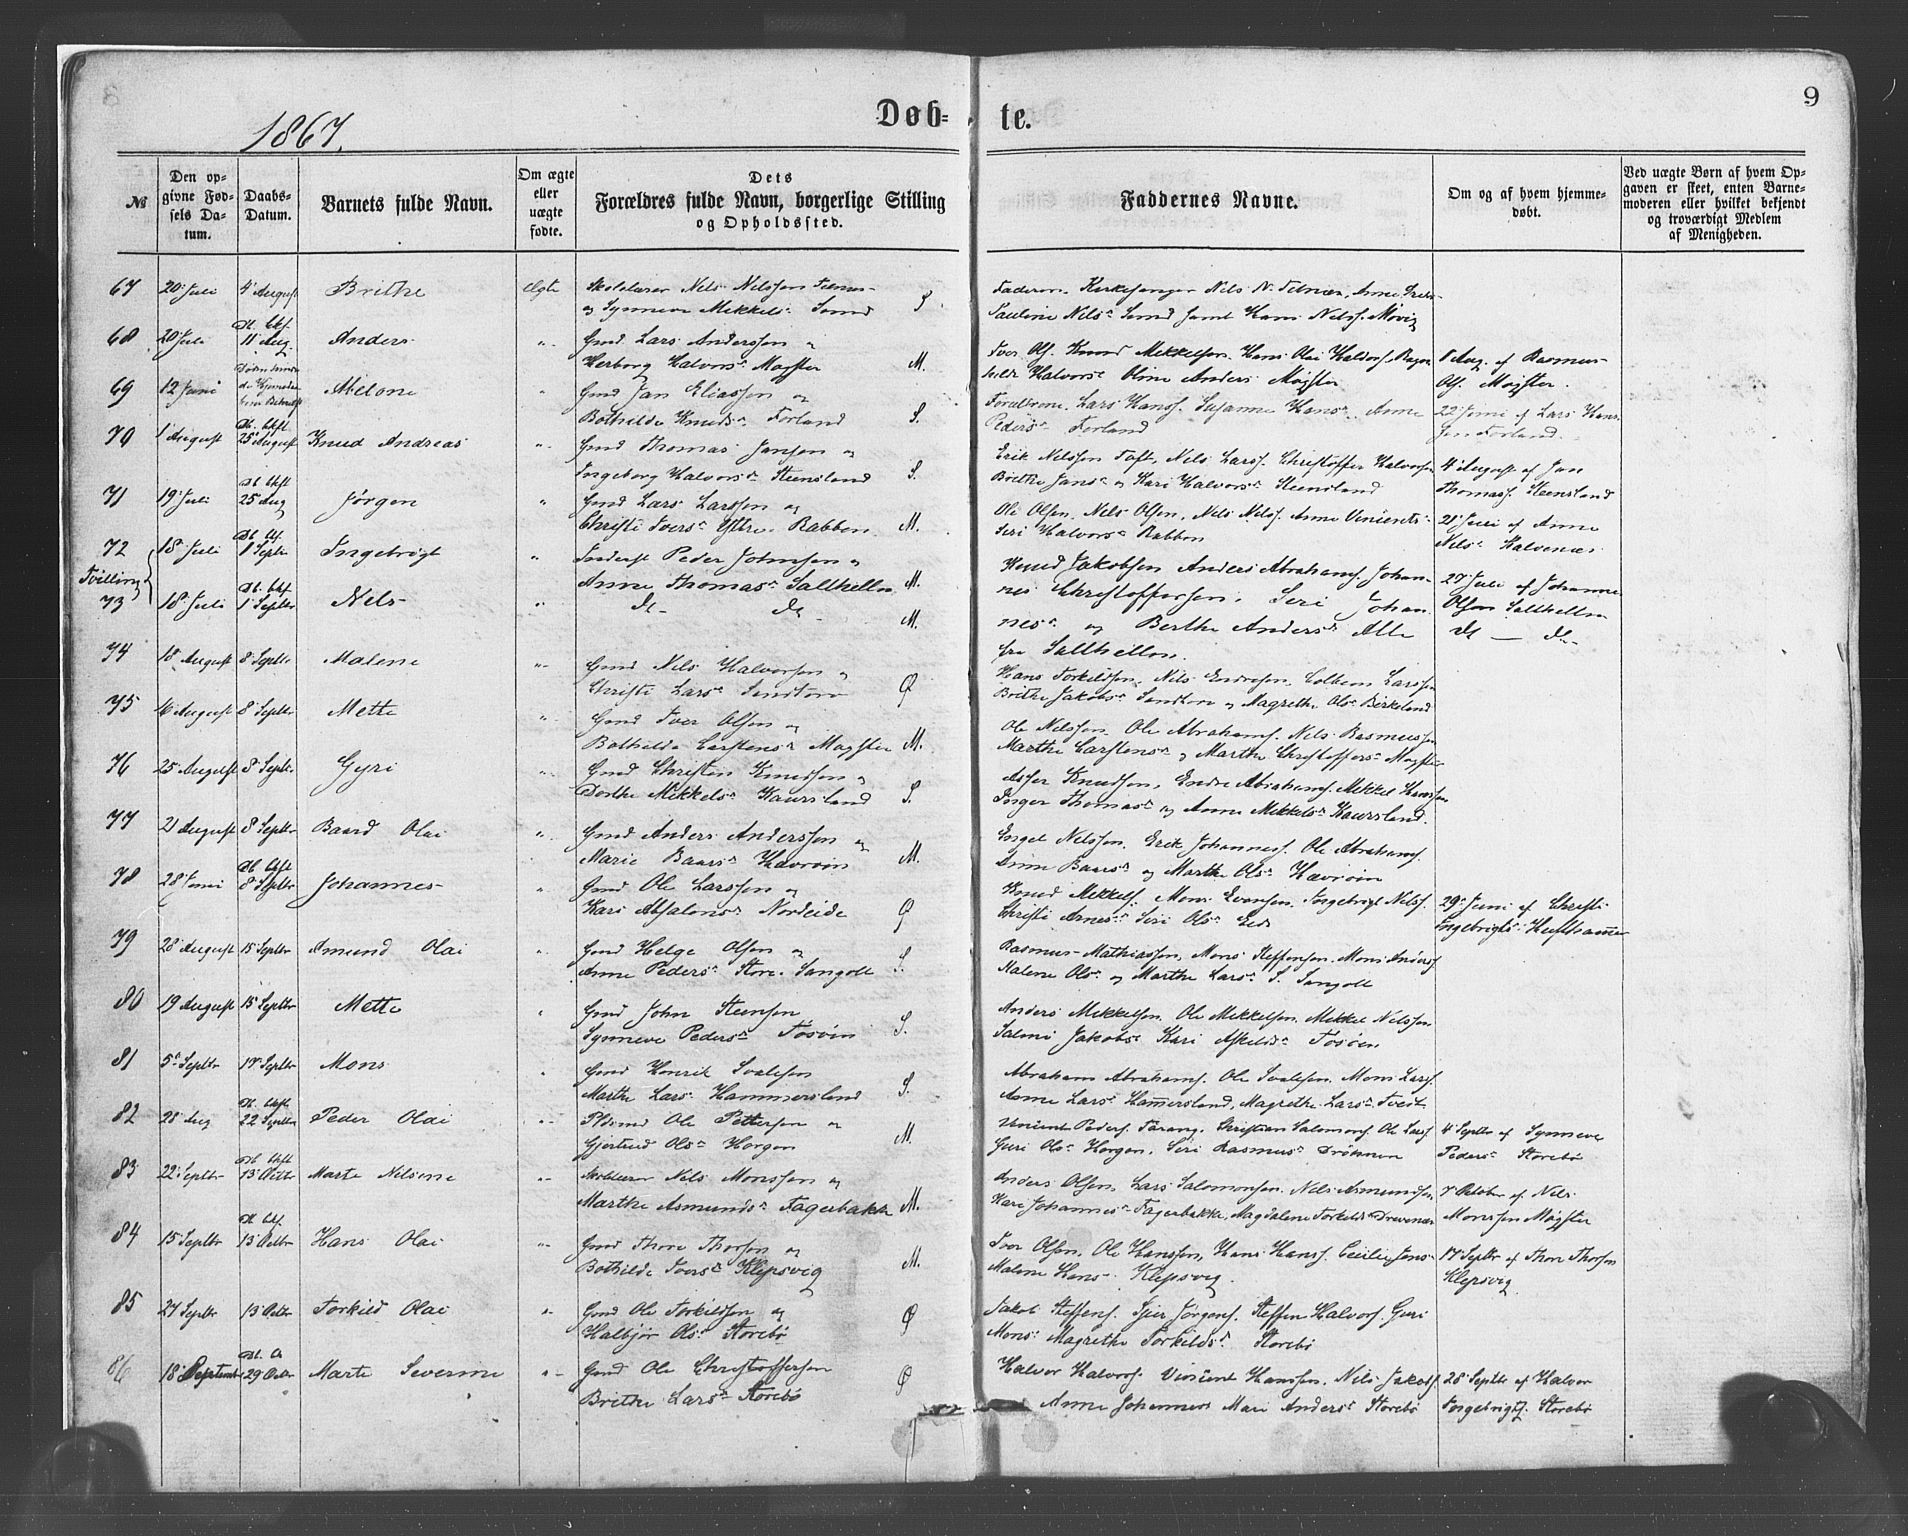 8
1867.
Døb-
te.
9
№
Den opgivne Fødsels Datum.
Daabs-Datum.
Barnets fulde Navn.
Om ægte eller uægte fødte.
Dets Forældres fulde Navn, borgerlige Stilling og Opholdssted.
Faddernes Navne.
Om og af hvem hjemmedøbt.
Ved uægte Børn af hvem Opgaven er skeet, enten Barnemoderen eller hvilket bekjendt og troværdigt Medlem af Menigheden.
67 20 Juli 4 August Brithe Ægte Skolelærer Nels Nelssen
og Synneve Mikkels Sund S.
Faderen, Kirkesanger Nels N.
Pauline Nels Sund samt Hans Nelss. Møvig
68 20 Juli 11 Aug. Anders Gmd Lars Anderssen og
Herborg Halvors Møgster M.
Iver Ols. Knud Mekkelsen. Hans Olai Haldors.
Halvors Oline Anders Møgster
1 Aug. af Rasmus
Ols. Møgster.
69 12 Juni Melone Gmd Jan Eliassen og
Bothilde Knuds Forland S.
Forældrene, Lars Hans. Susanne Hans Anne
Peders Forland
22 Juni af Lars Hans-
sen Forland.
70 1 August 25 August Knud Andreas Gmd Thomas Jansen og
Ingeborg Halvors Steensland S.
Erik Nelssen Toft, Nels Larss. Christoffer Halvorsen
Brithe Jans og Kari Halvors Steensland
4 August af Jan
Thomass. Steensland
71 19 Juli 25 Aug Jørgen Gmd Lars Larssen og
Christi Ivers Ystre Rabben M.
Ole Olsen, Nels Olsen, Nels Nelss. Anne Vincents
Seri Halvors Rabben
21 Juli af Anne
Nels Kalvenæs
72 18 Juli 1 Septbr Ingebrigt Inderst Peder Johnsen og
Anne Thomas Salthelln M.
Knud Jakobsen Anders Abrahams. Johan-
nes Christoffersen. Seri Johan-
27 Juli af Johanne
Olsen Salthelln
Tvilling
73 18 Juli 1 Septbr Nels do do M.
nes og Berthe Anders Alle
fra Salthellen.
do — do
74 18 August 8 Septbr Malene Gmd Nels Halvorsen og
Christi Lars Sandtorv Ø
Hans Torkildsen, Nils Endresen, Larssen
Brithe Jakobs Sandtorv og Magrethe Ols Birkeland
75 16 August 8 Septbr Mette Gmd Iver Olsen og
Bothilde Carstens Møgster M.
Ole Nelssen, Ole Abrahams. Nels Rasmussen
Marthe Carstens og Marthe Christoffers Møgster
76 25 August 8 Septbr Gyri Gmd Christen Knudsen og
Dorthe Mikkels Kaursland S.
Asser Knudsen, Endre Abrahams. Mekkel Hanssen
Inger Thomas og Anne Mekkels Kaursland.
77 21 August 8 Septbr Baard Olai Gmd Anders Anderssen og
Marie Baars Hævrøin M.
Engel Nelssen. Erik Johanness. Ole Abrahams.
Anne Baars og Marthe Ols Hævrøin
78 28 Juni 8 Septbr Johannes Gmd Ole Larssen og
Kari Absalons Nordeide Ø
Knud Mekkels. Mons Evensen. Ingebrigt Nels.
Christi Arnes Seri Ols Eide
29 Juni af Christi
Ingebrigts
79 28 August 15 Septbr Amund Olai Gmd Helge Olsen og
Anne Peders Store Sangolt S.
Rasmus Mathiassen, Mons Steffensen. Mons Anders.
Malene Ols og Marthe Lars S. Sangolt
80 19 August 15 Septbr Mette Gmd John Steensen
Synneve Peders Tøsøin S.
Anders Mekkelsen. Ole Mekkelsen. Mekkel Nelssen
Salmi Jakobs Kari Askilds Tøsøen
81 5 Septbr 17 Septbr Mons Gmd Henrik Ivalesen
Marthe Lars Hammersland S.
Abraham Abrahams. Ole Ivalesen. Mons Larss.
Anne Lars Hammersland, Magrethe Lars Tveit
82 28 Aug 22 Septbr Peder Olai Ole Pettersen og
Gjertrud Ols Horgen M.
Vincent Peders. Tarang. Christian Salomons. Ole Larss.
Guri Ols Horgen, Seri Rasmus Drønen
4 Septbr af Synneve
Peders Storebø
83 22 Septbr 13 Octbr Marte Nelsine Skolelærer Nels Monssen og
Marthe Asmunds Fagerbakke M.
Anders Olsen, Lars Salomonsen. Nels Asmundsen,
Kari Johannes Fagerbakke, Magdalene Torkilds Drevenæs
7 October af Nels
Monssen Møgster
84 15 Septbr 13 Octbr Hans Olai Gmd Thore Thorsen og
Bothilde Ivers Klepsvig M.
Iver Olsen. Ole Hanssen, Hans Hanss. Cecilie Jens
Malene Hans Klepsvig.
17 Septbr af Thore Thorsen
Klepsvig
85 27 Septbr 13 Octbr Torkild Olai Gmd Ole Torkildsen og
Halbjør Ols Storebø Ø
Jakob Steffens. Jørgens. Steffen Halvors. Guri
Mons Magrethe Torkilds Storebø
86 18 September 29 Octbr Marte Severine Gmd Ole Christoffersen
Brithe Lars Storebø Ø
Halvor Halvors. Vincent Hanssen. Nils Jakobs.
Anne Johannes Mari Anders Storebø
28 Septbr af Halvor
Ingebrigts. Storebø